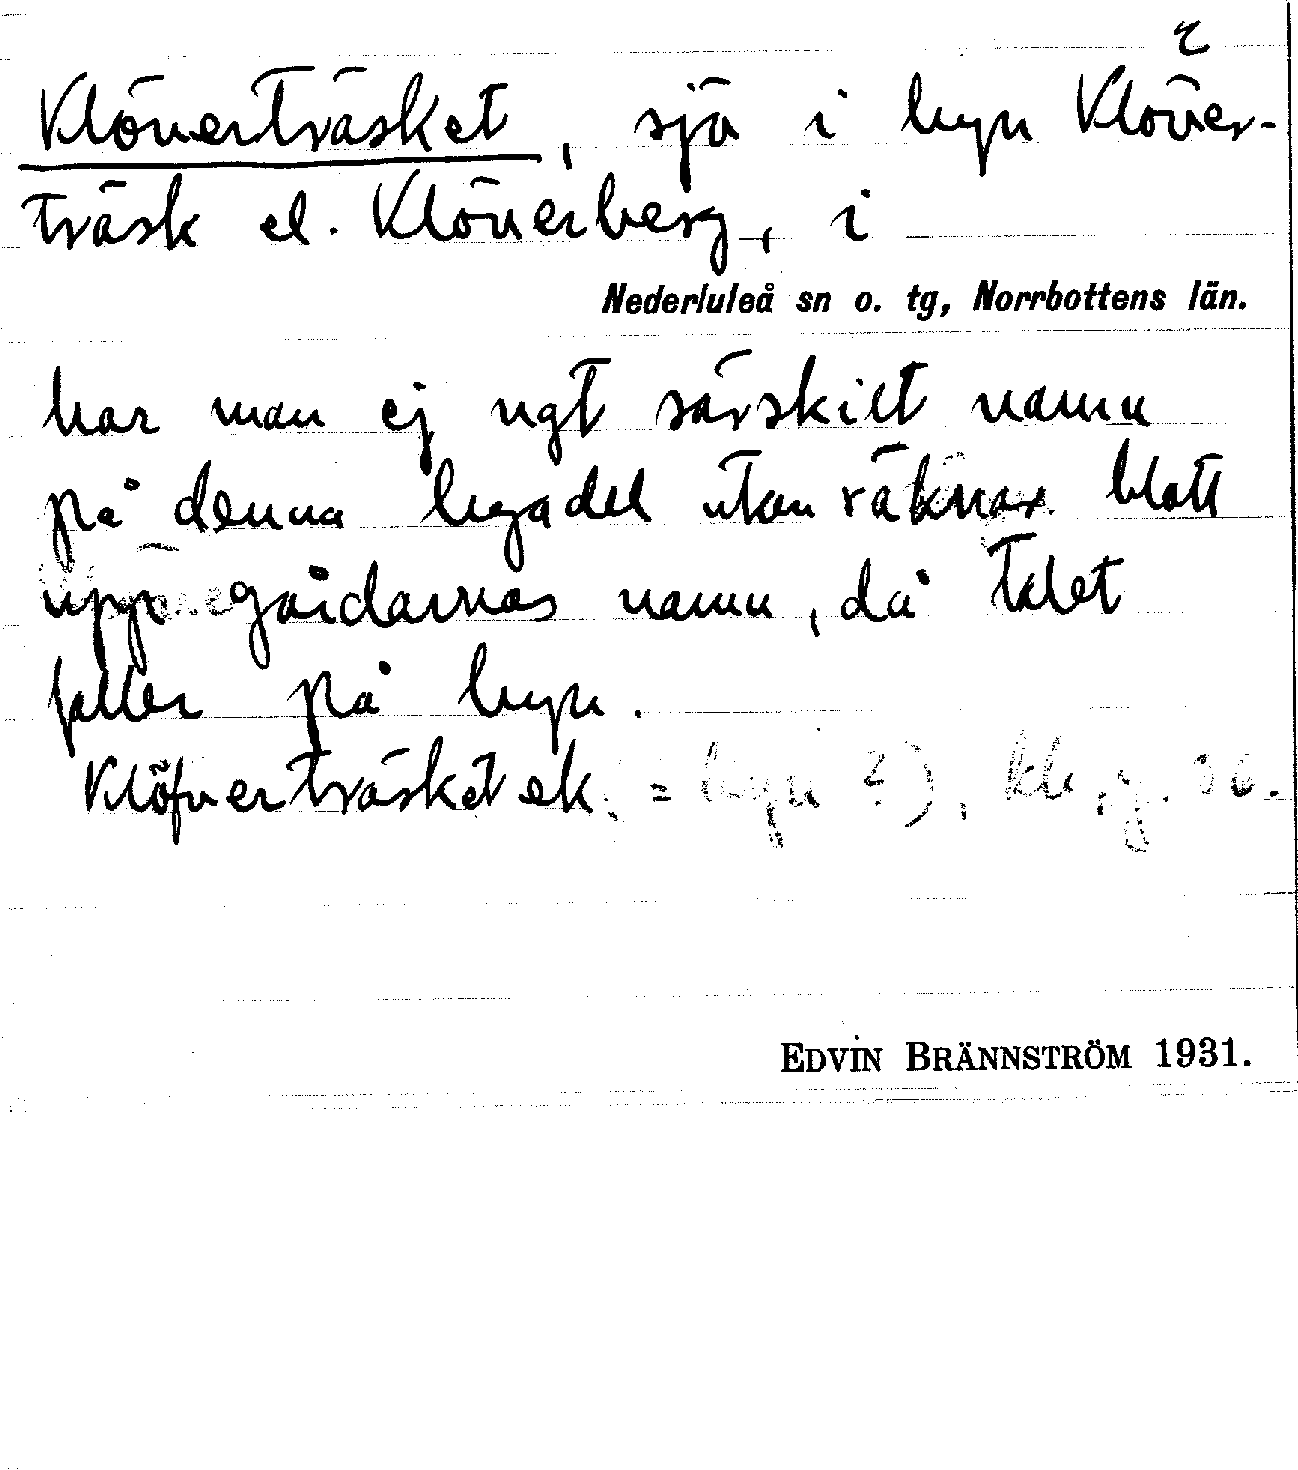 2
Klöverträsket, sjö i byn Klöver-
träsk el. Klöverberg, i
Nederluleå sn o. tg, Norrbottens län.
har man ej ngt särskilt namn
på denna byadel utan räknar blott
upp gårdarnas namn, då talet
faller på byn.
Klöfverträsket ek. (= byn?),
EDVIN BRÄNNSTRÖM 1931.